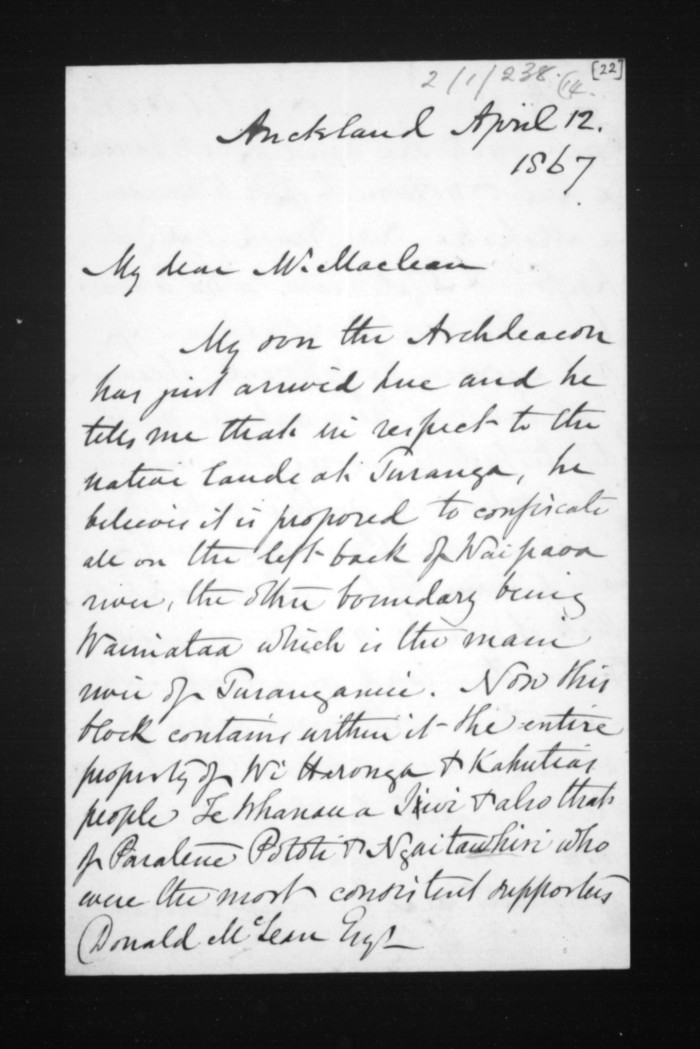 2/1/238. (14.
[22]
Auckland April 12.
1867.
My dear Mr. Maclean
My son the Archdeacon
has just arrived here and he
tells me that in respect to the
native lands at Turanga, he
believes it is proposed to confiscate
all on the left bank of Waipaoa
river, the other boundary being
Waimataa which is the main
river of Turanganui. Now this
block contains within it the entire
property of Wi Haronga & Kahutias
people Te Whanau a Iwi & also that
of Paratene Pototi & Ngaitawhiri who
were the most consistent supporters
Donald McLean Esqr